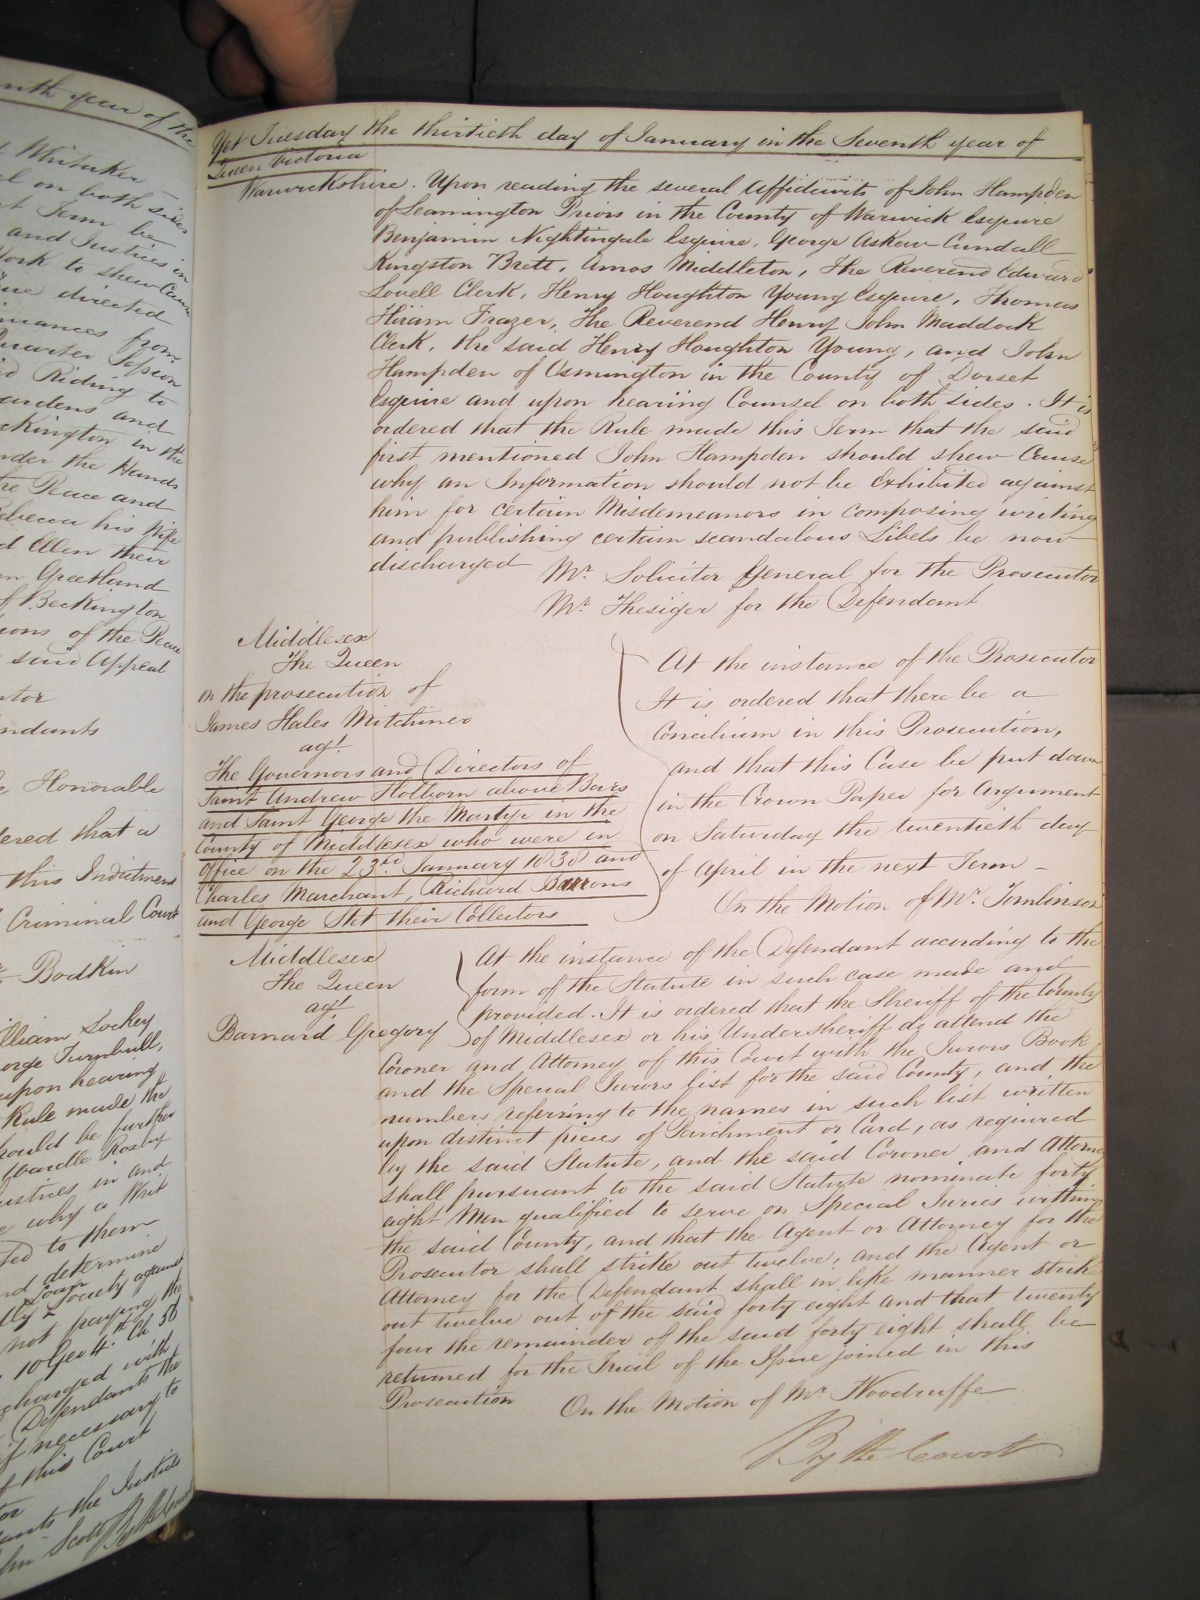 nth year of the
Whitaker
l on both sides
t Term be
and Justices in
York to shew Cause
ure directed
inances from
Quarter Session
id Riding to
ardens and
ckington in the
nder the Hands
he Peace and
ebecca his Wife
d Ellen their
m Greetland
f Beckington
ions of the Peace
said Appeal
utor
ndants
e Honorable
ered that a
this Indictment
Criminal Court
Bodkin
illiam Lockey
orge Turnbull,
upon hearing
Rule made the
hould be further
Wardle Roxby
ustices in and
e why a Writ
ted to them
nd determine
Loan
Society against
not paying the
10 Geo 4th Ch 56
scharged with
Defendants the
if necessary to
f this Court
tor
ants the Justices
hn Scott By the Court
Yet Tuesday the thirtieth day of January in the Seventh year of
Queen Victoria
Warwickshire. Upon reading the several Affidavits of John Hampden
of Leamington Priors in the County of Warwick Esquire
Benjamin Nightingale Esquire, George Askew Cundall
Kingston Brett, Amos Middleton, The Reverend Edward
Lovell Clerk, Henry Houghton Young Esquire, Thomas
Hiram Frazer, The Reverend Henry John Maddock
Clerk, the said Henry Houghton Young, and John
Hampden of Osmington in the County of Dorset
Esquire and upon hearing Counsel on both sides. It is
ordered that the Rule made this Term that the said
first mentioned John Hampden should shew Cause
why an Information should not be exhibited against
him for certain Misdemeanors in composing writing
and publishing certain scandalous Libels be now
discharged
Mr. Solicitor General for the Prosecutor
Mr. Thesiger for the Defendant
Middlesex
The Queen
on the prosecution of
James Hales Mitchiner
agt.
The Governors and Directors of
Saint Andrew Holborn above Bars
and Saint George the Martyr in the
County of Middlesex who were in
Office on the 23rd January 1838 and
Charles Marchant, Richard Barrons
and George Stet their Collectors
At the instance of the Prosecutor
It is ordered that there be a
Concilium in this Prosecution,
and that this Case be put down
in the Crown Paper for Argument
on Saturday the twentieth day
of April in the next Term
On the Motion of Mr. Tomlinson
Middlesex
The Queen
agt.
Barnard Gregory
At the instance of the Defendant according to the
form of the Statute in such case made and
provided. It is ordered that the Sheriff of the County
of Middlesex or his Undersheriff do attend the
Coroner and Attorney of this Court with the Jurors Book
and the Special Jurors list for the said County, and the
numbers referring to the names in such list written
upon distinct pieces of Parchment or Card, as required
by the said Statute, and the said Coroner and Attorney
shall pursuant to the said Statute nominate forty
eight Men qualified to serve on Special Juries within
the said County, and that the Agent or Attorney for the
Prosecutor shall strike out twelve, and the Agent or
Attorney for the Defendant shall in like manner strike
out twelve out of the said forty eight and that twenty
four the remainder of the said forty eight shall be
returned for the Trial of the Issue joined in this
Prosecution
On the Motion of Mr. Woodruffe
By the Court